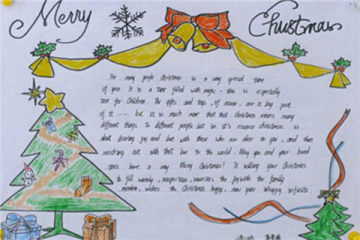 Merry Christmas
For many people Christmas is a very special time
of year. It is a time filled with magic - this is especially
true for children. The gifts and toys, of course, are a big part
of it -- but it is much more that that Christmas means many
different things to different people but in it's essence Christmas is
about sharing joy and love with those who are dear to you, and then
reaching out with that love to the world. May you and your loved
ones have a very Merry Christmas!
to fill warmly, the joy with the family
member, wishes the Christmas happy, new year